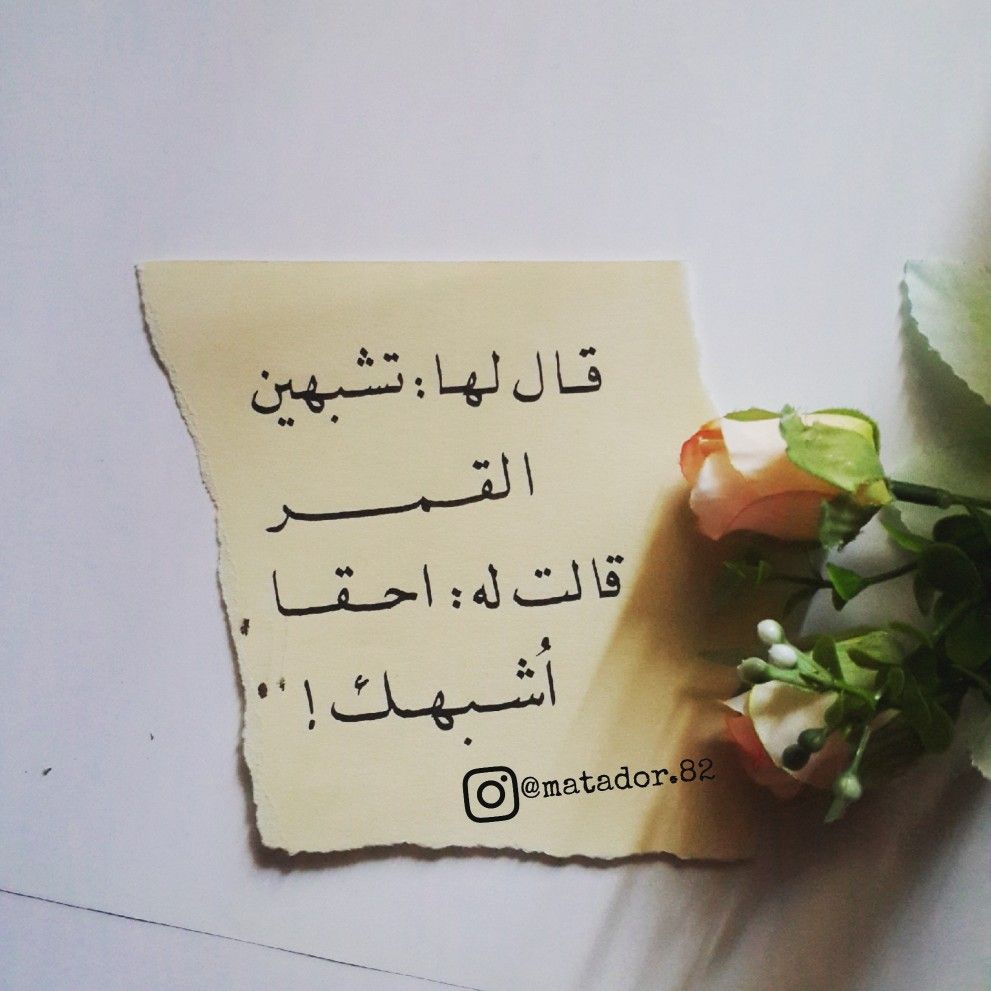 قال لها: تشبهين
القمر
قالت له: احقا
أُشبهك!
@matador.82